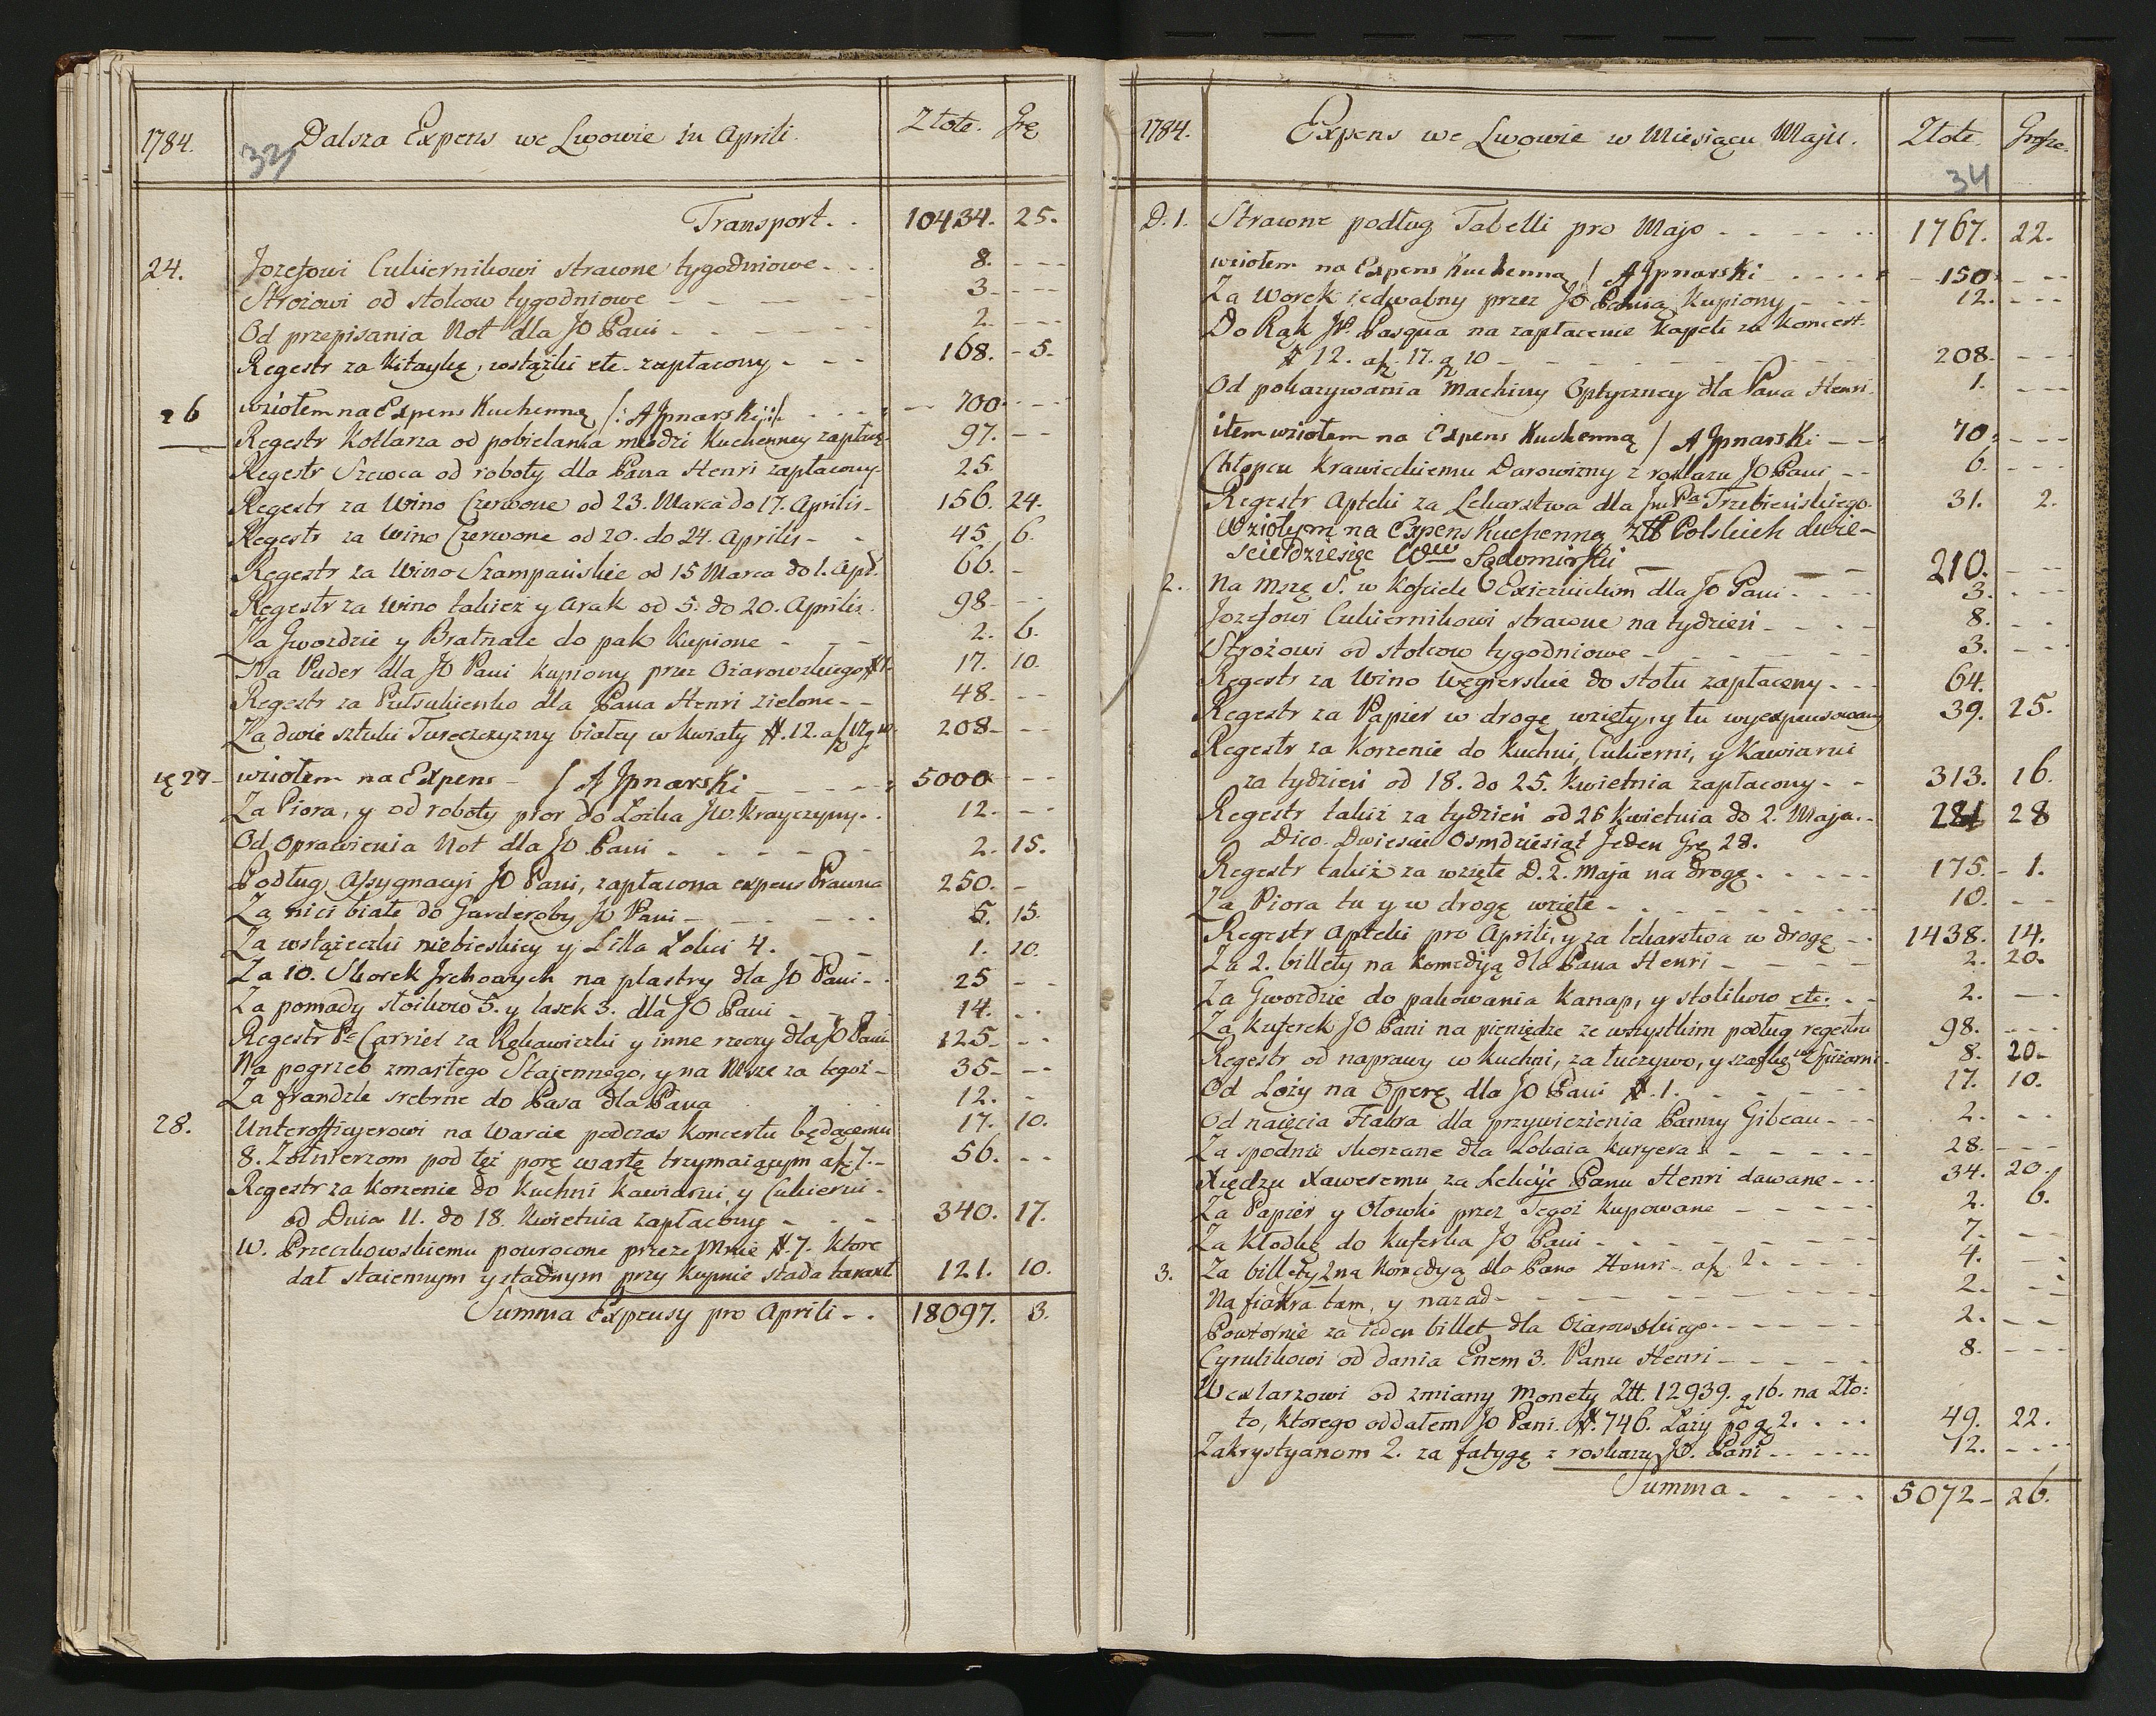 1784. Dalsza Expens we Lwowie in Aprili. Złote. Grę
33
Transport. . 10434. 25.
24. Jozefowi Cukiernikowi strawne tygodniowe - - . 8. - - -
Strożowi od stolcow tygodniowe - - - - - 3. - - -
Od przepisania Not dla JO Pani - - - - - - 2. - - -
Regestr za Kitaykę, wstążki etc. zapłacony - - - 168. - 5.
26 wziołem na Expens Kuchenną /: AJpnarski :/ . . . . 700 - - -
Regestr Kotlarza od pobielania miedzi Kuchenney zapłac. 97. - -
Regestr Szewca od roboty dla Pana Henri zapłacony - 25.
Regestr za Wino Czerwone od 23. Marca do 17. Aprilis - 156. 24.
Regestr za Wino Czerwone od 20. do 24. Aprilis - - 45. 6.
Regestr za Wino Szampańskie od 15 Marca do 1. Apr. 66. -
Regestr za Wino takież y Arak od 5. do 20. Aprilis. 98 - -
Za Gwozdzie y Bratnale do pak Kupione - - - 2. 6.
Na Puder dla JO Pani kupiony przez Ożarowskiego # 1. 17. 10.
Regestr za Pułsukienko dla Pana Henri zielone - - 48. - -
Za dwie sztuki Tureczczyzny białey w kwiaty #. 12. af 17 g 10 208 - - -
27 - wziołem na Expens - / AJpnarski - - - - 5000 - - -
Za Piora, y od roboty pior do Łożka JW. Krayczyny. . 12. - -
Od Oprawienia Not dla JO Pani - - - - - - 2. 15.
Podług Assygnacyi JO Pani, zapłacona expens Prawna 250. -
Za nici białe do Garderoby JO Pani - - - - - 5. 15.
Za wstążeczki niebieskiey y Lilla Łokci 4. - - 1. 10.
Za 10. Skorek Irchowych na plastry dla JO Pani - . 25 - -
Za pomady słoikow 5. y lasek 3. dla JO Pani - - - 14. . .
Regestr Pe Carrier za Rękawiczki y inne rzeczy dla JO Pani 125 - - -
Na pogrzeb zmarłego Staiennego, y na Msze za tegoż - 35 - - -
Za frandzle srebrne do Pasa dla Pana . . . 12. -
28. Unteroffcyerowi na Warcie podczas Koncertu będącemu 17. 10.
8. Żołnierzom pod też porę wartę trzymaiącym af 7. - 56. - -
Regestr za Korzenie do Kuchni Kawiarni, y Cukierni -
od Dnia 11. do 18. Kwietnia zapłacony - - - - 340. 17.
W. Przeczkowskiemu powrocone przeze Mnie #. 7. ktore
dał staiennym y stadnym przy Kupnie stada tarant 121. 10.
Summa Expensy pro Aprili - . 18097. 3.
1784. Expens we Lwowie w Miesiącu Maju. Złote. Grosze.
34
D. 1. Strawne podług Tabelli pro Majo - - - - - . . 1767. 22.
wziołem na Expens Kuchenną / AJpnarski . . . . - 150 - - -
Za Worek iedwabny przez JO Panią Kupiony - - - 12. - - -
Do Rąk JP. Pasqua na zapłacenie Kapeli za Koncert.
# 12. af. 17. g 10 - - - - - - - - - - 208. - - -
Od pokazywania Machiny Optyczney dla Pana Henri. 1. - - -
item wziołem na Expens Kuchenną / AJpnarski - - 70. - - -
Chłopcu Krawieckiemu Darowizny z roskazu JO Pani - - 6. - - -
Regestr Aptcki za Lekarstwa dla Jm Pa Trzebieńskiego. 31. 2.
Wziołym na Expens Kuchenną Ztł Polskich dwie-
scie dziesięc Sędomirski - - - - 210. - -
2. - Na Mszę S. w Kosciele dla JO Pani - . . . 3. . - -
Jozefowi Cukiernikowi strawne na tydzień - - - - 8. - -
Strożowi od stolcow tygodniowe - - - - - - 3. - - -
Regestr za Wino Węgierskie do stołu zapłacony - - - 64.
Regestr za Papier w drogę wzięty, y tu wyexpensowany 39. 25.
Regestr za Korzenie do Kuchni, Cukierni, y Kawiarni
za tydzień od 18. do 25. Kwietnia zapłacony - - 313. 16.
Regestr takiż za tydzień od 26 Kwietnia do 2. Maja. - 281 28
Dico. Dwiescie Osmdziesiąt Jeden Grę 28.
Regestr takiż za wzięte D. 2. Maja na drogę - - - - - 175. - 1.
Za Piora tu y w drogę wzięte - - - - - - - - 10. - -
Regestr Aptcki pro Aprili, y za lekarstwa w drogę - - 1438. 14.
Za 2. billety na Komedyją dla Pana Henri - - - - 2. 20.
Za Gwozdzie do pakowania Kanap, y stolikow etc. - - 2. - - .
Za Kuferek JO Pani na pieniędze ze wszystkim podług regestru 98. - - -
Regestr od naprawy w Kuchni, za łuczywo, y szaflę we Spiżarni - 8. 20 -
Od Loży na Operę dla JO Pani #. 1. - - - - - 17. 10.
Od naięcia Fiakra dla przywiezienia Panny Gibeau - - - 2. - - -
Za spodnie skorzane dla Lokaia Kuryera - - - - - - 28. - - -
Xiędzu Xaweremu za Lekcye Panu Henri dawane - - - 34. 20.
Za Papier y Ołowki przez Tegoż Kupowane - - - - - 2. 6.
Za Kłodkę do Kuferka JO Pani - - - - - - - - 7. - -
3. Za billety 2 na Komędyą dla Pana Henri - af. 2 - - - - - 4. - -
Na fiakra tam, y nazad - - - - - - - - - 2. - - -
Powtornie za ieden billet dla Ożarowskiego - - - - - - - 2. - - -
Cyrulikowi od dania Enem 3. Panu Henri - - - - - - 8. - - -
Wexlarzowi od zmiany Monety Ztł. 12939. g 16. na Zło:
to, ktorego oddałem JO Pani. #. 746. Lazy po g 2. . . . 49. 22.
Zakrystyanom 2. za fatygę z roskazu JO. Pani - - - - - - 12. - - - -
Summa - . - - - 5072 - 26.